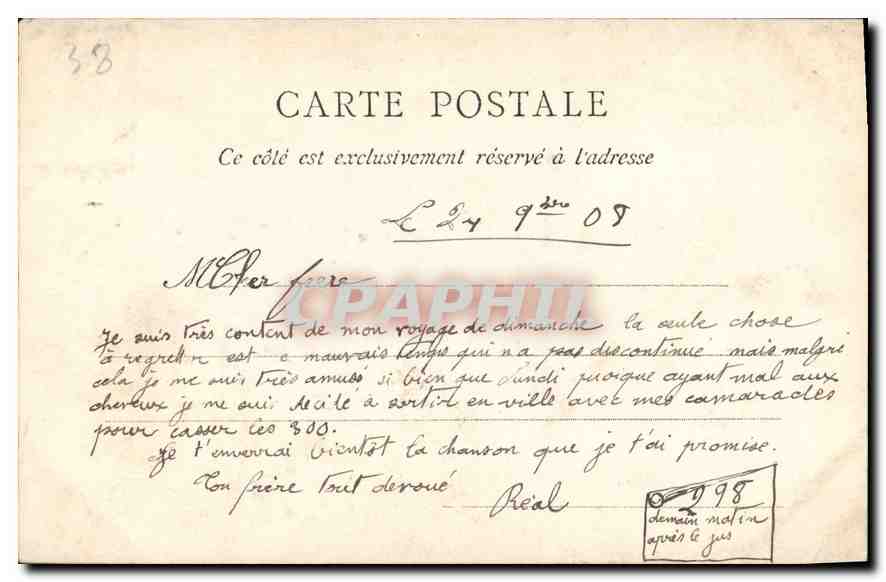 38
CARTE POSTALE
Ce côté est exclusivement réservé à l'adresse
Le 24 9bre 08
Cher frère
CPAPHIL
Je suis très content de mon voyage de dimanche la seule chose
à regretter est le mauvais temps qui n'a pas discontinué mais malgré
cela je me suis très amusé si bien que Lundi puoique ayant mal aux
cheveux je me suis décidé à sortir en ville avec mes camarades
pour casser les 300.
Je t'enverrai bientôt la chanson que je t'ai promise.
Ton frère tout dévoué
Réal
298
demain matin
après le jus